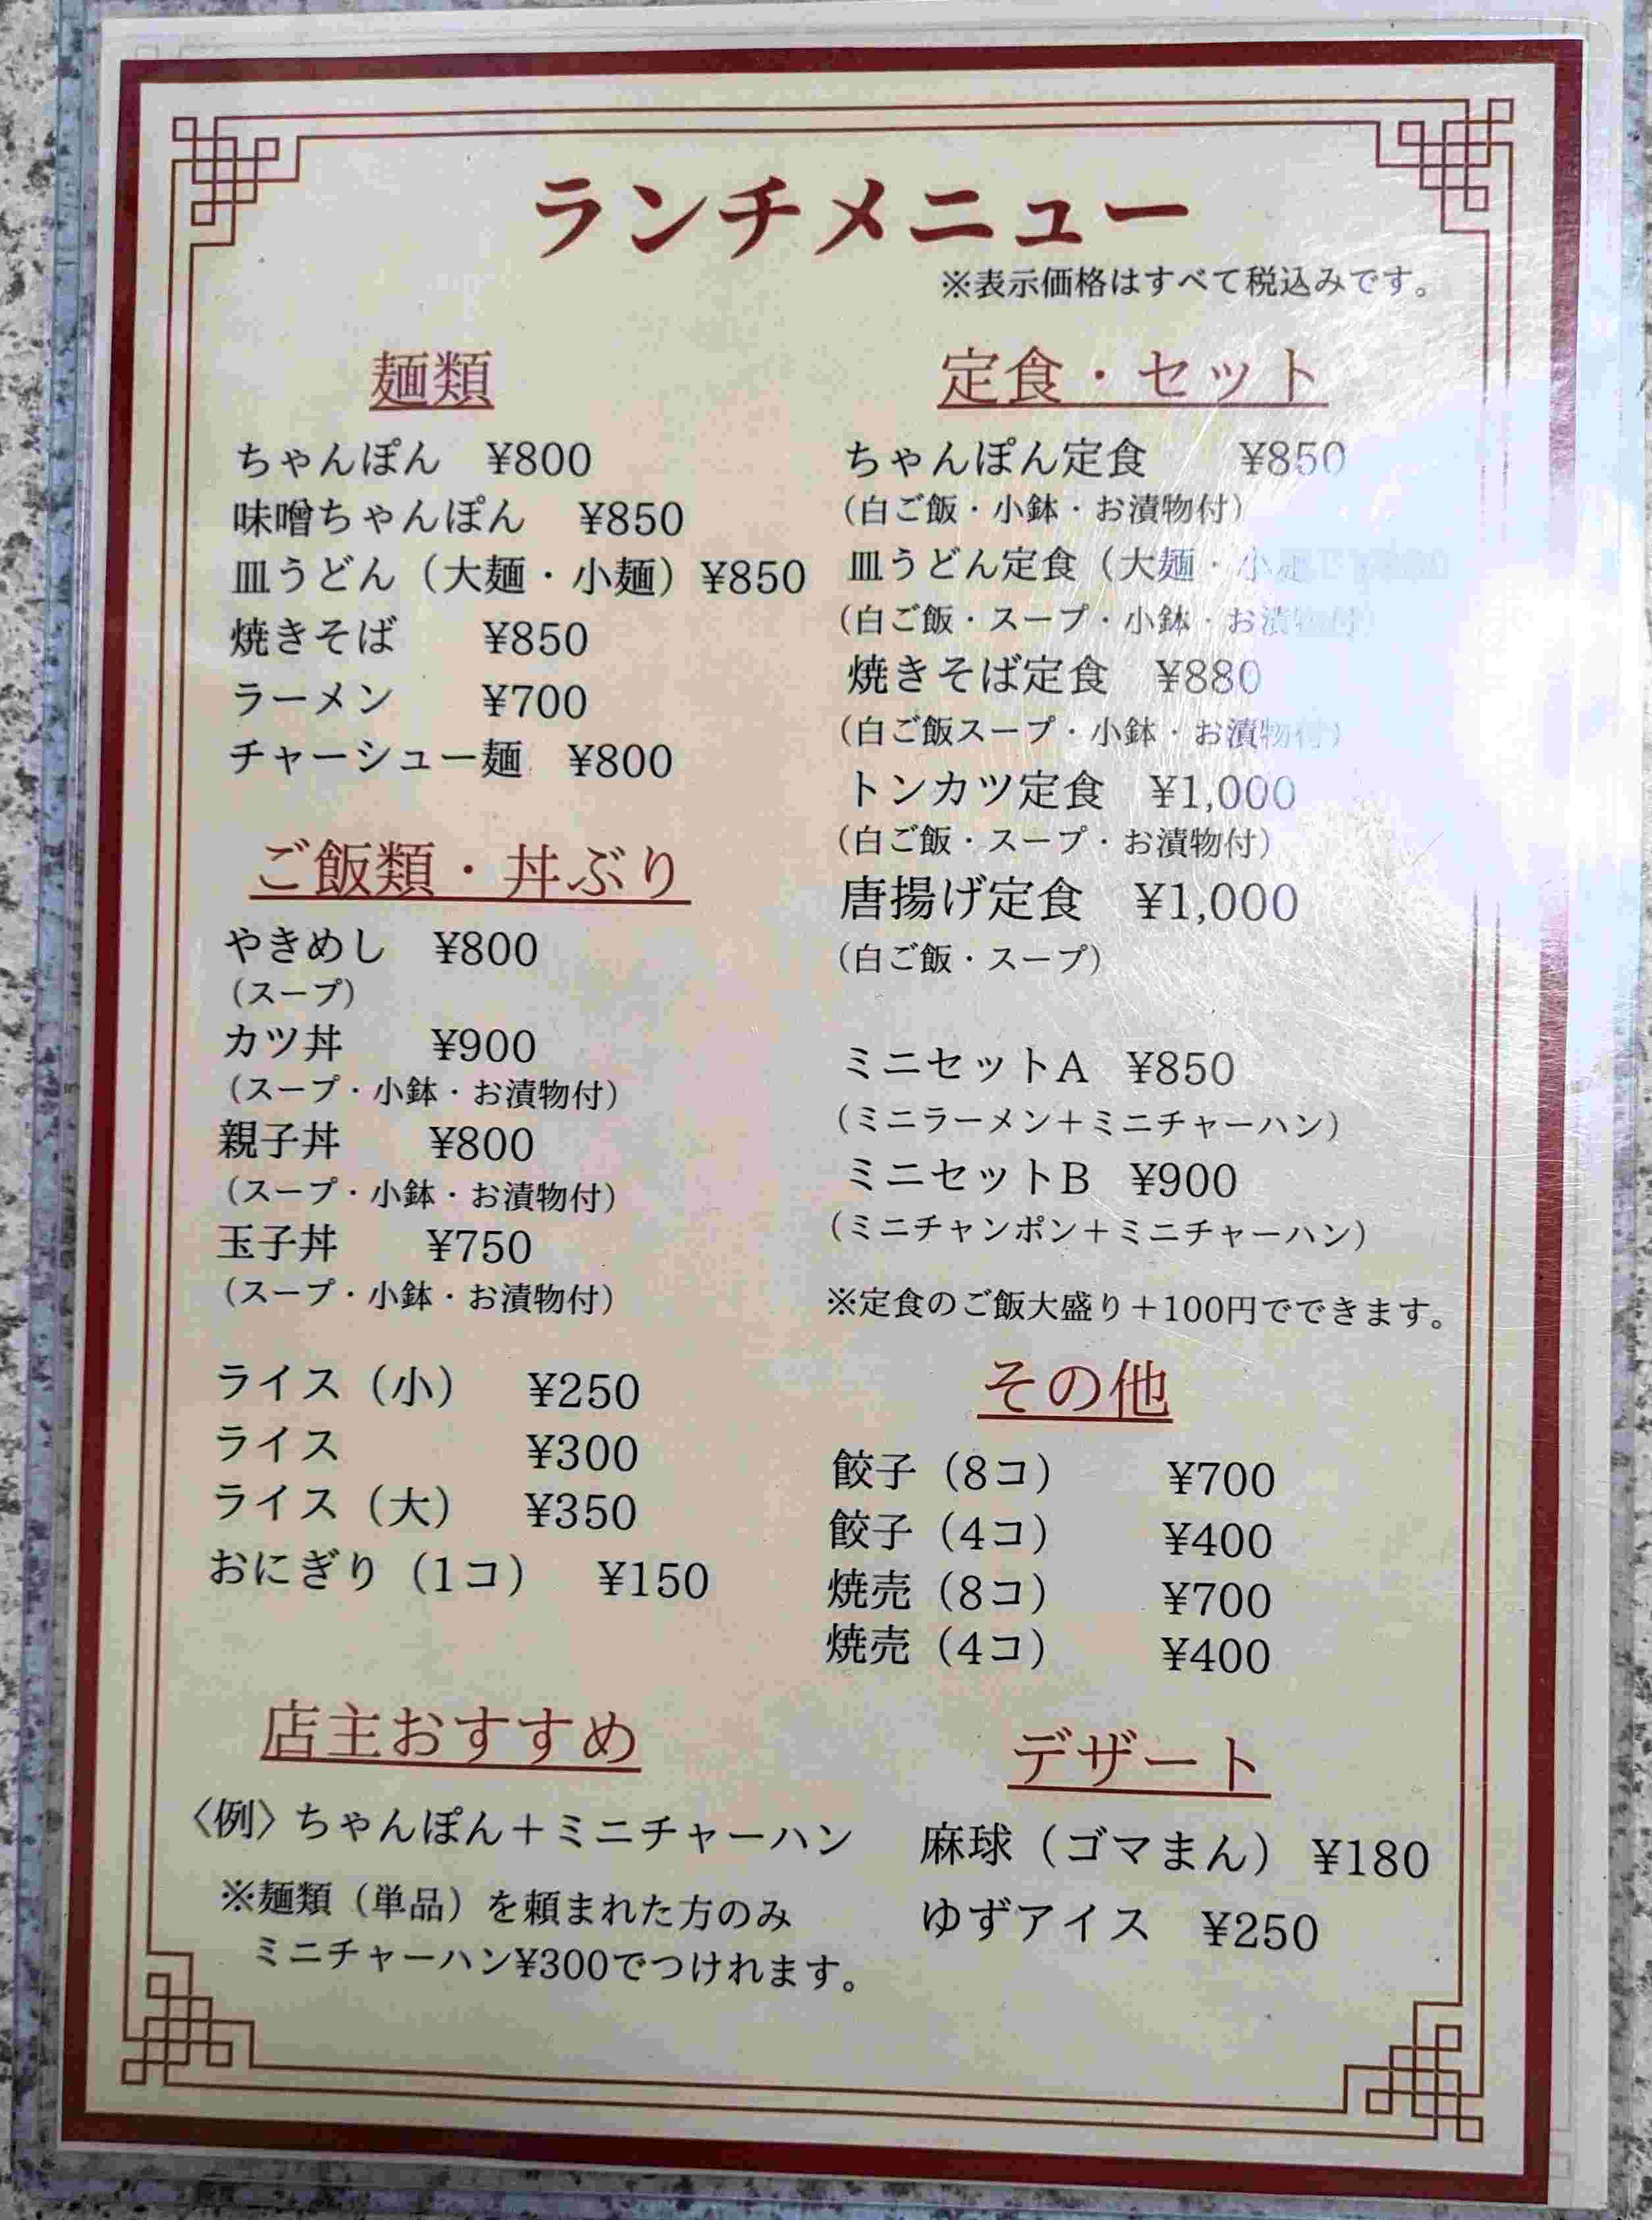 ランチメニュー
※表示価格はすべて税込みです。
麺類
ちゃんぽん ¥800
味噌ちゃんぽん ¥850
皿うどん（大麺・小麺）¥850
焼きそば ¥850
ラーメン ¥700
チャーシュー麺 ¥800
ご飯類・丼ぶり
やきめし ¥800
（スープ）
カツ丼 ¥900
（スープ・小鉢・お漬物付）
親子丼 ¥800
（スープ・小鉢・お漬物付）
玉子丼 ¥750
（スープ・小鉢・お漬物付）
ライス（小） ¥250
ライス ¥300
ライス（大） ¥350
おにぎり（1コ） ¥150
店主おすすめ
〈例〉ちゃんぽん＋ミニチャーハン
※麺類（単品）を頼まれた方のみ
ミニチャーハン¥300でつけれます。
定食・セット
ちゃんぽん定食 ¥850
（白ご飯・小鉢・お漬物付）
皿うどん定食（大麺・小麺
（白ご飯・スープ・小鉢・お漬物付）
焼きそば定食 ¥880
（白ご飯スープ・小鉢・お漬物付）
トンカツ定食 ¥1,000
（白ご飯・スープ・お漬物付）
唐揚げ定食 ¥1,000
（白ご飯・スープ）
ミニセットA ¥850
（ミニラーメン＋ミニチャーハン）
ミニセットB ¥900
（ミニチャンポン＋ミニチャーハン）
※定食のご飯大盛り＋100円でできます。
その他
餃子（8コ） ¥700
餃子（4コ） ¥400
焼売（8コ） ¥700
焼売（4コ） ¥400
デザート
麻球（ゴマまん） ¥180
ゆずアイス ¥250